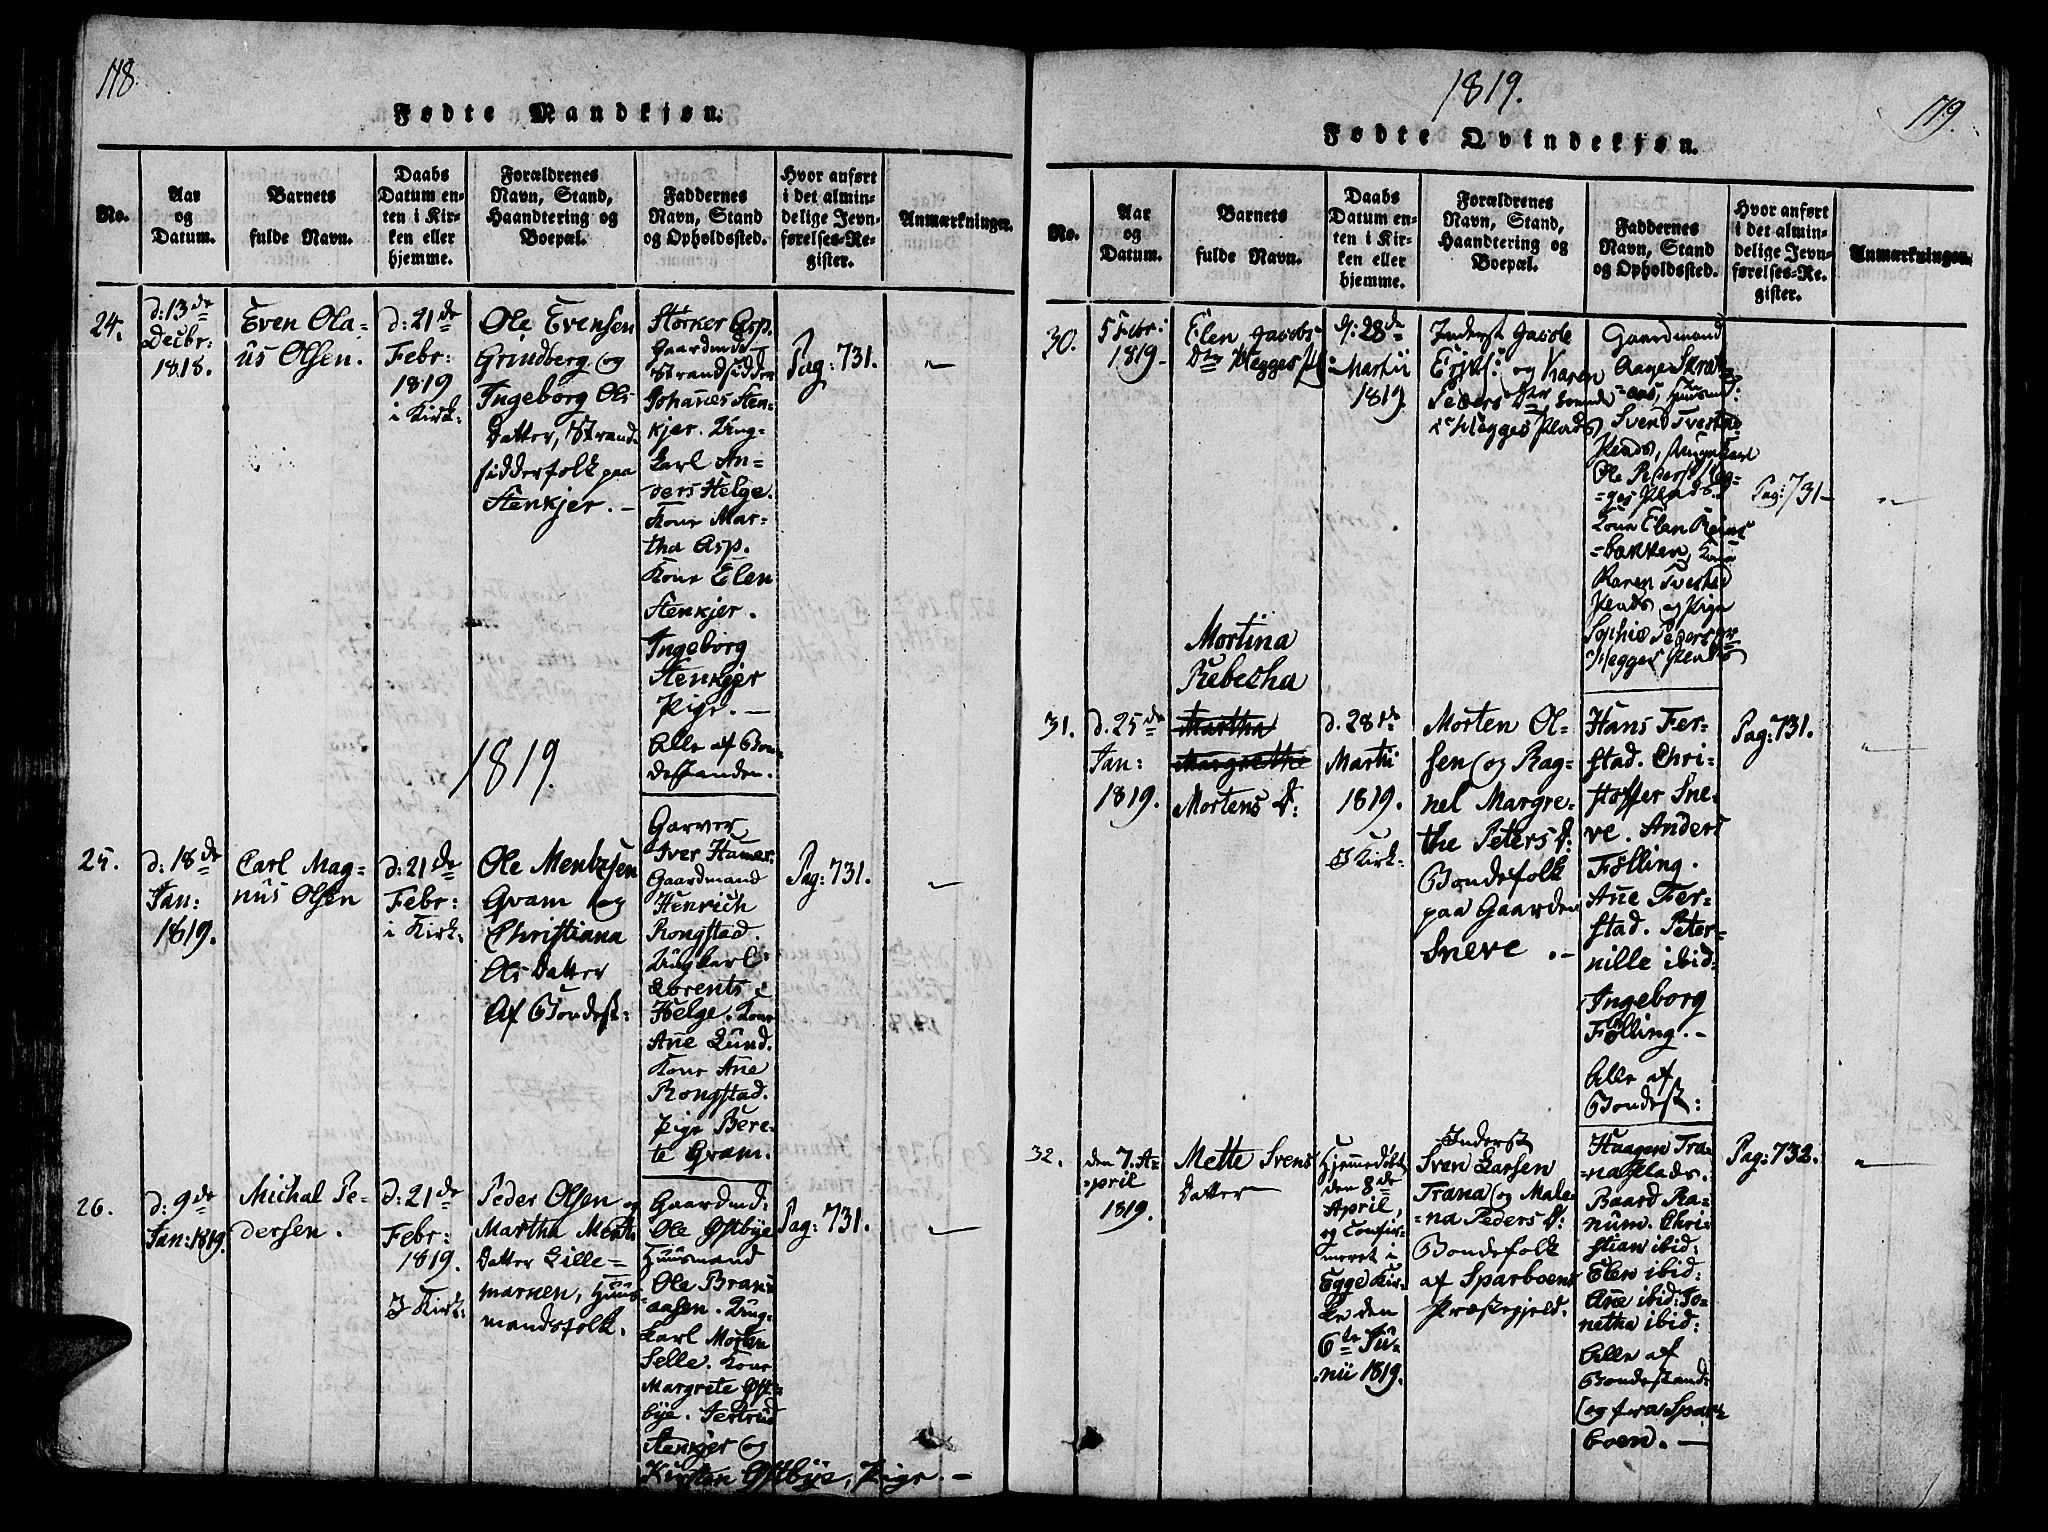 118.
Fødte Mandkjøn.
No.
Aar
og
Datum.
Barnets
fulde Navn.
Daabs
Datum en-
ten i Kir-
ken eller
hjemme.
Forældrenes
Navn, Stand,
Haandtering og
Boepæl.
Faddernes
Navn, Stand
og Opholdssted.
Hvor anført
i det almin-
delige Jevn-
førelses-Re-
gister.
Anmærkninger.
24.
d: 13de
Decbr:
1818.
Even Ola-
us Olsen.
d: 21de
Febr:
1819
i Kirk:
Ole Evensen
Grindberg og
Ingeborg Ols
Datter, Strand-
sidderfolk paa
Stenkjer. –
Størker Asp.
Gaardmd
Strandsidder
Johanes Sten-
kjer. Ung-
karl An-
ders Helge.
Kone Mar-
tha Asp.
Kone Elen
Stenkjer.
Ingeborg
Stenkjer
Pige. –
Alle af Bon-
destanden.
Pag: 731.
"
1819.
25.
d: 18de
Jan:
1819.
Carl Mag-
nus Olsen
d: 21de
Febr:
i Kirk:
Ole Mentzsen
Qvam og
Christiana
Ols Datter
Af Bondest:
Garver
Iver Hamer.
Gaardmand
Henrich
Rongstad.
Ungkarl
Lorents
Helge. Kone
Ane Lund.
Kone Ane
Rongstad.
Pige Bere-
te Qvam.
Pag: 731.
26.
d: 9de
Jan: 1819.
Michal Pe-
dersen.
d: 21de
Febr:
1819.
I Kirk:
Peder Olsen og
Martha
Datter Lille-
marnen, Huus-
mandsfolk.
Gaardmd:
Ole Østbye
Huusmand
Ole Brans-
aasen. Ung-
karl Morten
Selle. Kone
Margrete Øst-
bye. Gertrud
Stenkjer og
Kirsten Østbye, Pige. –
Pag: 731.
1819.
119.
Fødte Qvindekjøn.
No.
Aar
og
Datum.
Barnets
fulde Navn.
Daabs
Datum en-
ten i Kir-
ken eller
hjemme.
Forældrenes
Navn, Stand,
Haandtering og
Boepæl.
Faddernes
Navn, Stand
og Opholdssted.
Hvor anført
i det almin-
delige Jevn-
førelses-Re-
gister.
Anmærkninger.
30.
5 Febr:
1819
Elen Jacobs
Dtr Hegges Pl
d: 28de
Martii
1819.
Inderst Jacob
Eriks: og Karen
Peders Dtr boende
i Hegges Plads
Gaardmand
Aage Skrat-
-aas, Huusmd:
Svend Tvesthe
Plads, Ungekarl
Ole Peders: Heg-
-ges Plads.
Kone Elen Reins
-bakken, Kone
Karen Tvesthe
Plads og Pige
Sophie Peders Dtr
Hegges Plads
Pag: 731
31.
d. 25de
Jan:
1819.
Mortina
Rebecha
Martha
Margrethe
Mortens D:
d. 28de
Martii
1819.
I Kirk:
Morten Ol-
sen og Rag-
nel Margre-
the Peters D:
Bondefolk
paa Gaarden
Sneve. –
Hans Fer-
stad. Chri-
stoffer Sne-
ve. Anders
Følling.
Ane Fer-
stad. Peter-
nille ibid:
Ingeborg
Følling. –
Alle af
Bondest:
Pag: 731.
32.
den 7. A-
-pril
1819.
Mette Svens
Datter
Hjemmedøbt
den 8de
April,
og Confir-
meret i
Egge Kir-
ke den
6te Ju-
nii 1819.
Inderst
Sven Larsen
Trana og Male-
-na Peders D:
Bondefolk
af Sparboens
Præstegjeld.
Haagen Tra-
-naplads.
Baard Ra-
num. Chri-
stian ibid:
Elen ibid:
Ane ibid: Jo-
netha ibid:
Alle af
Bondestand:
og fra Spar-
boen. –
Pag: 732.